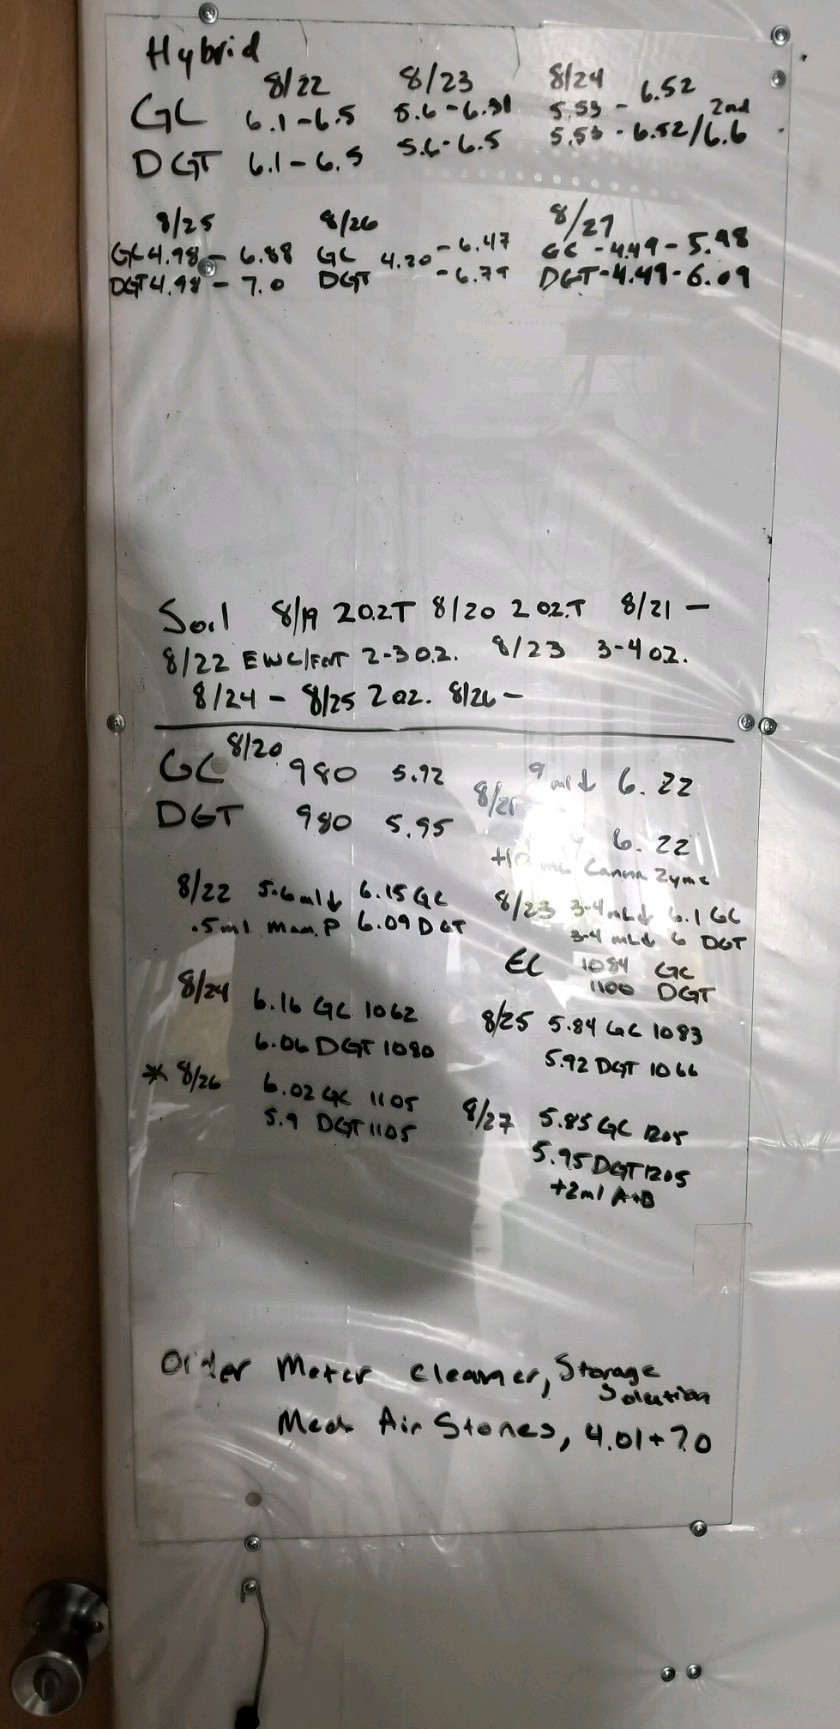 Hybrid
8/22 8/23 8/24
GC 6.1-6.5 5.6-6.31 5.53 - 6.52
DGT 6.1-6.5 5.6-6.5 5.53 - 6.52/6.6 2nd
8/25 8/26 8/27
GC 4.98 - 6.88 GC 4.20 - 6.47 GC - 4.49 - 5.98
DGT 4.98 - 7.0 DGT - 6.79 DGT - 4.49 - 6.09
Soil 8/19 2 0.2T 8/20 2 02.T 8/21 -
8/22 EWC/Fert 2-3 02. 8/23 3-4 02.
8/24 - 8/25 2 02. 8/26 -
GC 8/20 980 5.92 9 ml↓ 6.22
DGT 980 5.95 8/21 6.22
Canna Zyme
8/22 5.6ml↓ 6.15 GC 8/23 3-4 mL↓ 6.1 GC
.5ml Mam. P 6.09 DGT 3-4 mL↓ 6 DGT
EC 1084 GC
1100 DGT
8/24 6.16 GC 1062 8/25 5.84 GC 1083
6.06 DGT 1080 5.92 DGT 1066
* 8/26 6.02 GC 1105 8/27 5.85 GC 1205
5.9 DGT 1105 5.95 DGT 1205
+2ml A+B
Order Meter Cleaner, Storage
Solution
Med Air Stones, 4.01 + 7.0